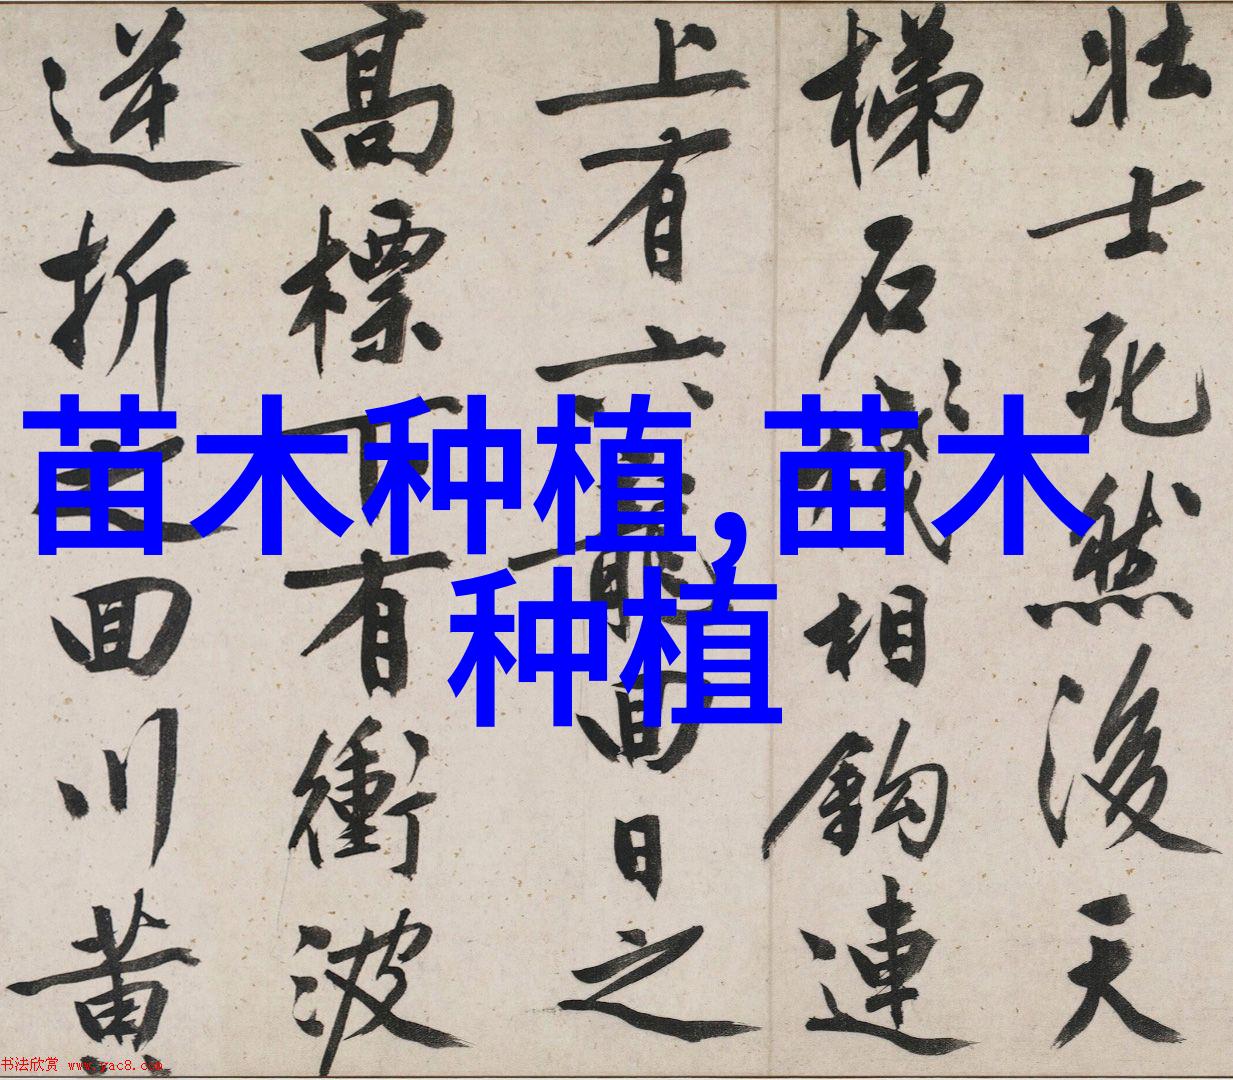 壮士死然後天
梯石棧相鉤連
上有六龍回日之
高標下有衝波
逆折之回川黄
苗木种植,苗木
种植
书法欣赏 www.yac8.com